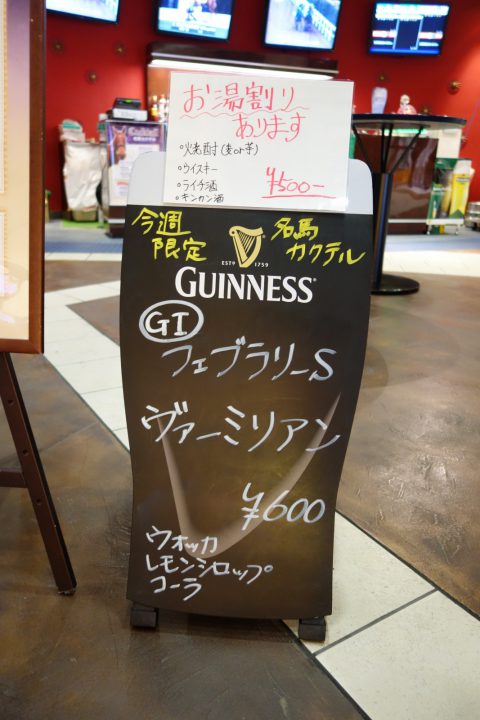 お湯割り
あります
◦焼酎(麦or芋)
◦ウイスキー
◦ライチ酒
◦キンカン酒
¥500-
今週
限定
名馬
カクテル
ESTD 1759
GUINNESS
GI
フェブラリーS
ヴァーミリアン
¥600
ウオッカ
レモンシロップ
コーラ